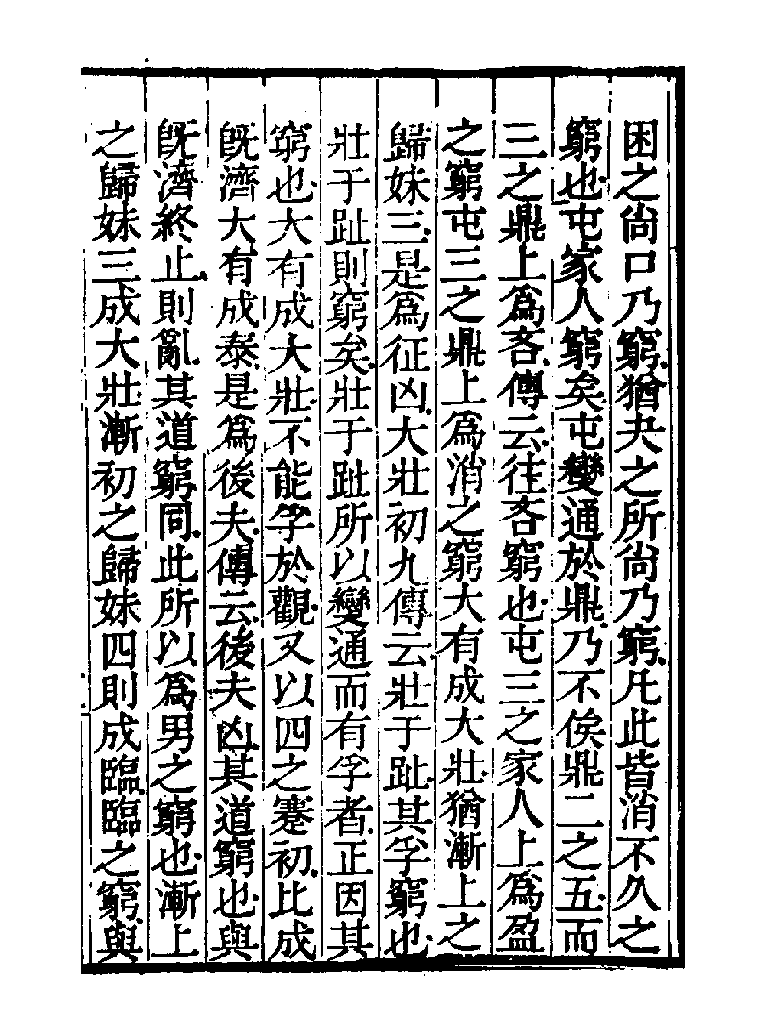 困之尙口乃窮猶夬之所尙乃窮凡此皆消不久之
窮也屯家人窮矣屯變通於鼎乃不俟鼎二之五而
三之鼎上爲吝傳云往吝窮也屯三之家人上爲盈
之窮屯三之鼎上爲消之窮大有成大壯猶漸上之
歸妹三是爲征凶大壯初九傳云壯于趾其孚窮也
壯于趾則窮矣壯于趾所以變通而有孚者正因其
窮也大有成大壯不能孚於觀又以四之蹇初比成
旣濟大有成泰是爲後夫傳云後夫凶其道窮也與
旣濟終止則亂其道窮同此所以爲男之窮也漸上
之歸妹三成大壯漸初之歸妹四則成臨臨之窮與